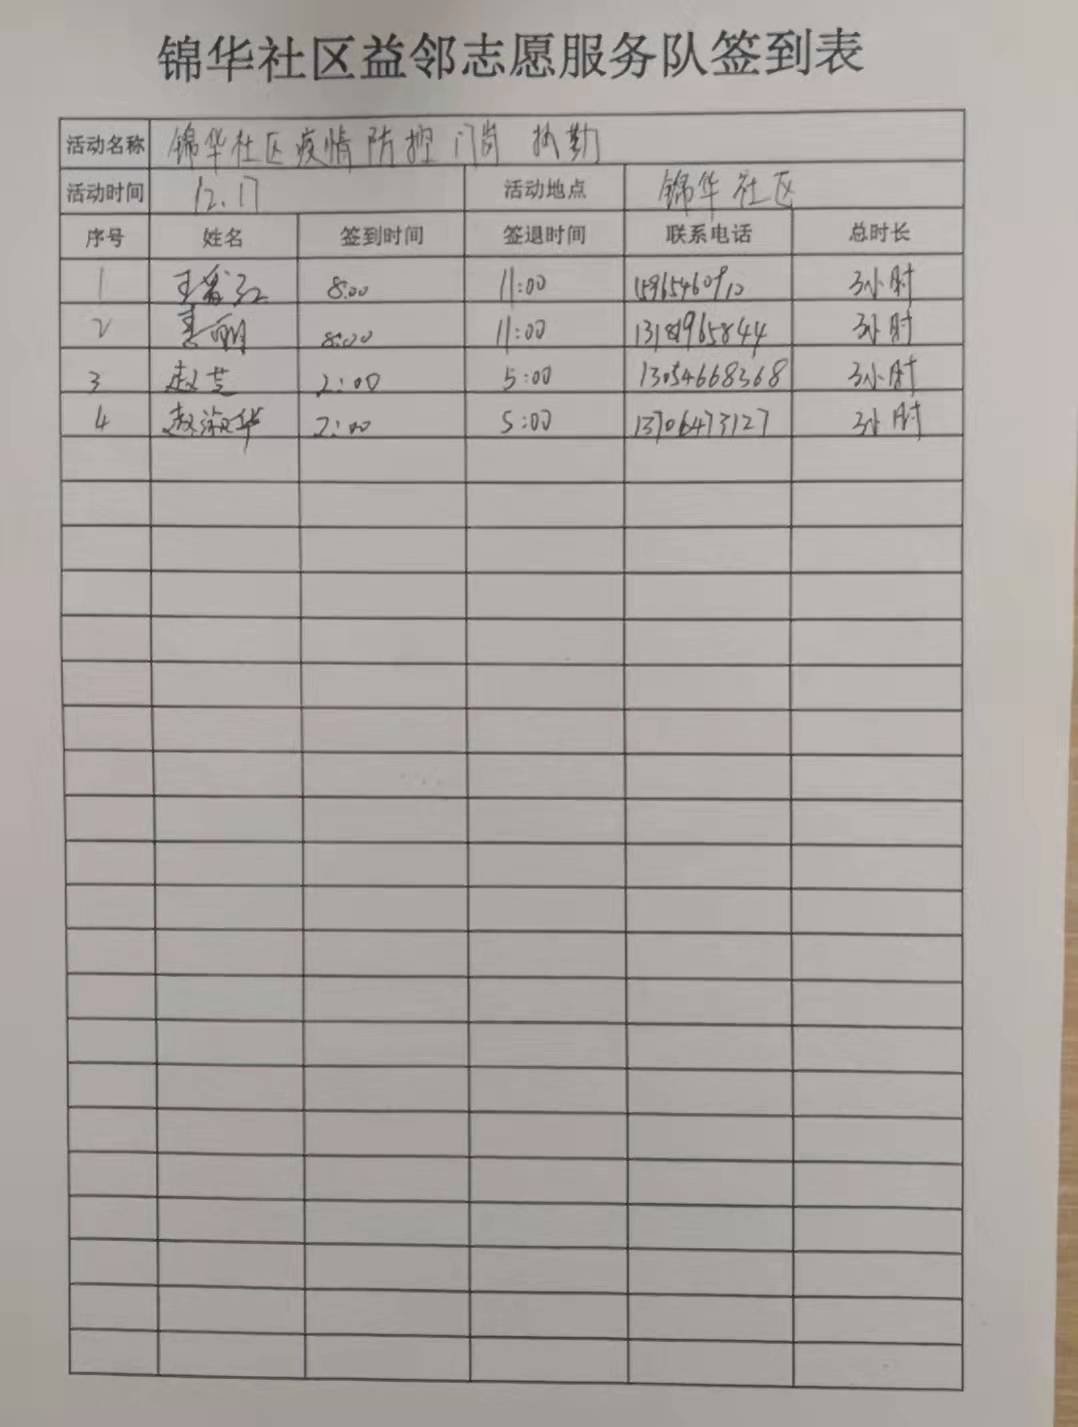 锦华社区益邻志愿服务队签到表
活动名称 锦华社区疫情防控门岗 执勤
活动时间 12.17 活动地点 锦华社区
序号 姓名 签到时间 签退时间 联系电话 总时长
1 王 红 8:00 11:00 15965460910 3小时
2 惠丽 8:00 11:00 3小时
3 赵芝 2:00 5:00 13054668368 3小时
4 赵淑华 2:00 5:00 13706473127 3小时